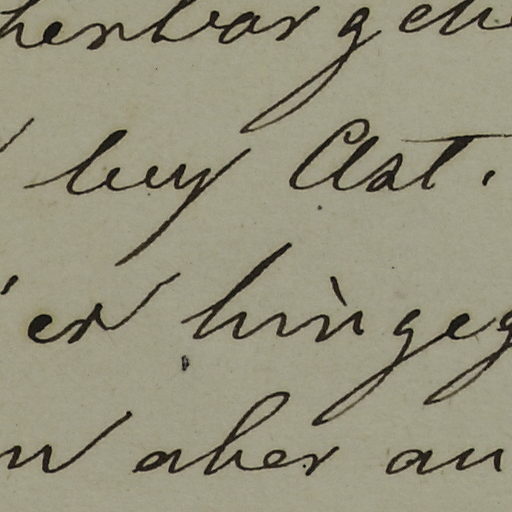 henbar geh
bey Ast.
er hingeg
n aber an